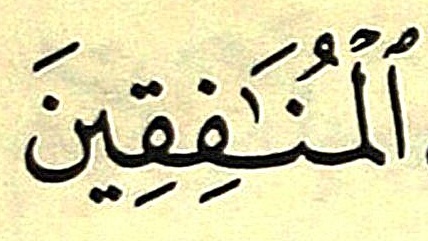 ٱلۡمُنَٰفِقِينَ